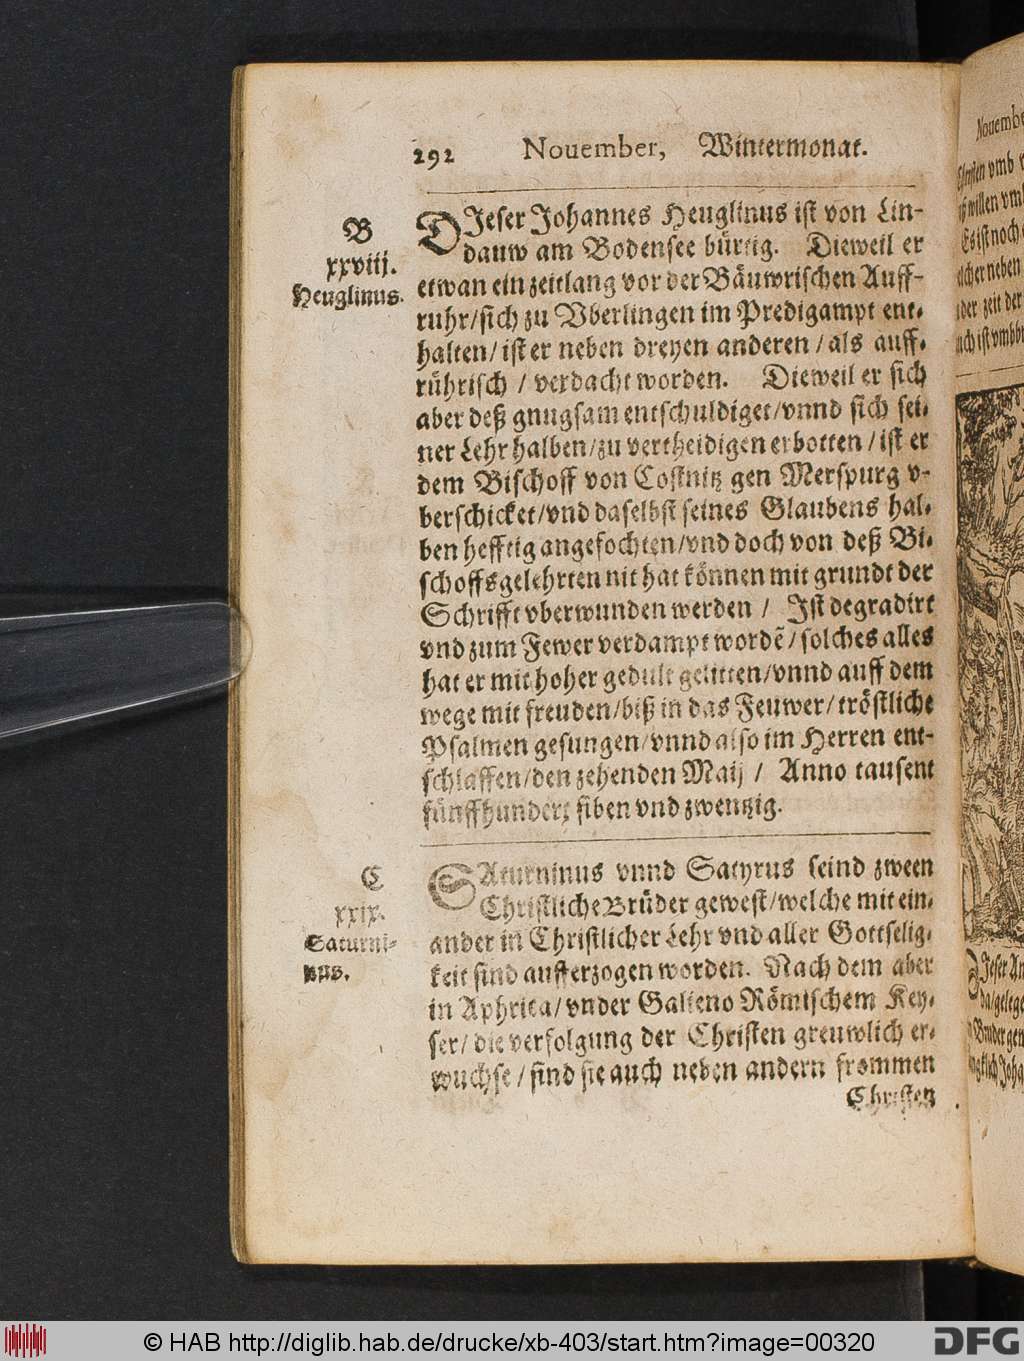 292 Nouember, Wintermonat.
B
xxviij.
Heuglinus.
DIeser Johannes Heuglinus ist von Lin-
dauw am Bodensee bürtig. Dieweil er
etwan ein zeitlang vor der Bäuwrischen Auff-
ruhr/sich zu Vberlingen im Predigampt ent-
halten/ ist er neben dreyen anderen / als auff-
rührisch / verdacht worden. Dieweil er sich
aber deß gnugsam entschuldiget/vnnd sich sei-
ner Lehr halben/zu vertheidigen erbotten / ist er
dem Bischoff von Costnitz gen Merspurg v-
berschicket/vnd daselbst seines Glaubens hal-
ben hefftig angefochten/vnd doch von deß Bi-
schoffs gelehrten nit hat können mit grundt der
Schrifft vberwunden werden / Ist degradirt
vnd zum Fewer verdampt wordẽ/solches alles
hat er mit hoher gedult gelitten/vnnd auff dem
wege mit freuden/biß in das Feuwer/tröstliche
Psalmen gesungen/vnnd also im Herren ent-
schlaffen/den zehenden Maij / Anno tausent
fünffhundert siben vnd zwentzig.
C
xxix.
Saturni-
nus.
SAturninus vnnd Satyrus seind zween
Christliche Brüder gewest/welche mit ein-
ander in Christlicher Lehr vnd aller Gottselig-
keit sind aufferzogen worden. Nach dem aber
in Aphrica/vnder Galieno Römischem Key-
ser/ die verfolgung der Christen greuwlich er-
wuchse / sind sie auch neben andern frommen
Christen
Nouembe
willen vm
Es ist noch
der zeit der
DIeser An
da/gelege
Bruder gen
© HAB http://diglib.hab.de/drucke/xb-403/start.htm?image=00320
DFG